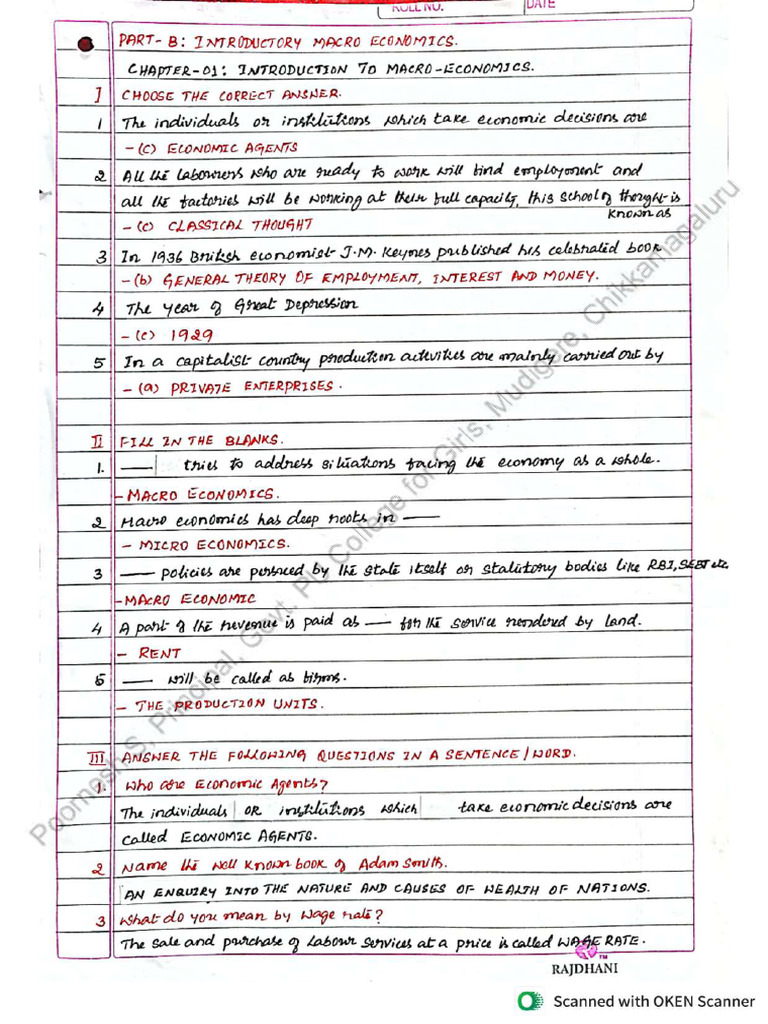 ROLL NO.
DATE
PART-B: INTRODUCTORY MACRO ECONOMICS.
CHAPTER-01: INTRODUCTION TO MACRO-ECONOMICS.
I CHOOSE THE CORRECT ANSWER.
1 The individuals or institutions which take economic decisions are
- (c) ECONOMIC AGENTS
2 All the labourers who are ready to work will find employment and
all the factories will be working at their full capacity, this school of thought is
known as
- (c) CLASSICAL THOUGHT
3 In 1936 British economist J.M. Keynes published his celebrated book
- (b) GENERAL THEORY OF EMPLOYMENT, INTEREST AND MONEY.
4 The year of Great Depression
- (c) 1929
5 In a capitalist country production activities are mainly carried out by
- (a) PRIVATE ENTERPRISES.
II FILL IN THE BLANKS.
1. — tries to address situations facing the economy as a whole.
- MACRO ECONOMICS.
2 Macro economics has deep roots in —
- MICRO ECONOMICS.
3 — policies are persued by the state itself or statutory bodies like RBI, SEBI etc.
- MACRO ECONOMIC
4 A part of the revenue is paid as — for the service rendered by land.
- RENT
5 — will be called as firms.
- THE PRODUCTION UNITS.
III ANSWER THE FOLLOWING QUESTIONS IN A SENTENCE/WORD.
1. Who are Economic Agents?
The individuals OR institutions which take economic decisions are
called ECONOMIC AGENTS.
2 Name the well known book of Adam Smith.
AN ENQUIRY INTO THE NATURE AND CAUSES OF WEALTH OF NATIONS.
3 What do you mean by Wage rate?
The sale and purchase of Labour services at a price is called WAGE RATE.
RAJDHANI
TM
Poornesh S, Principal, Govt. PU College for Girls, Mudigere, Chikkamagaluru
Scanned with OKEN Scanner